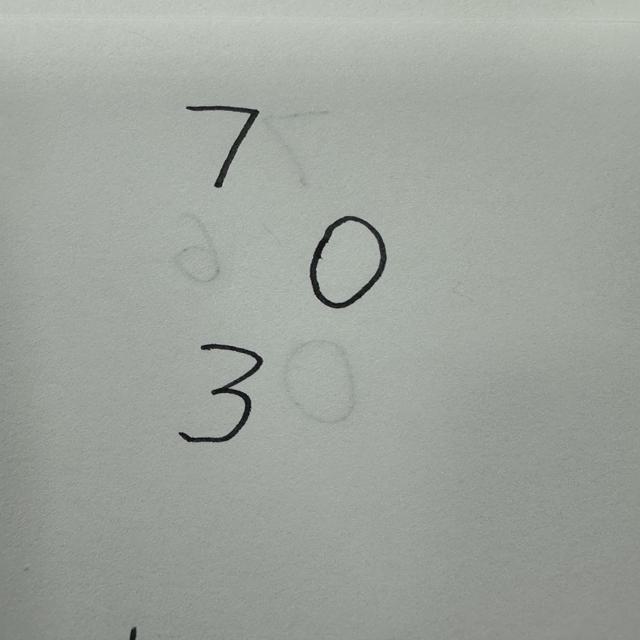 7
0
3